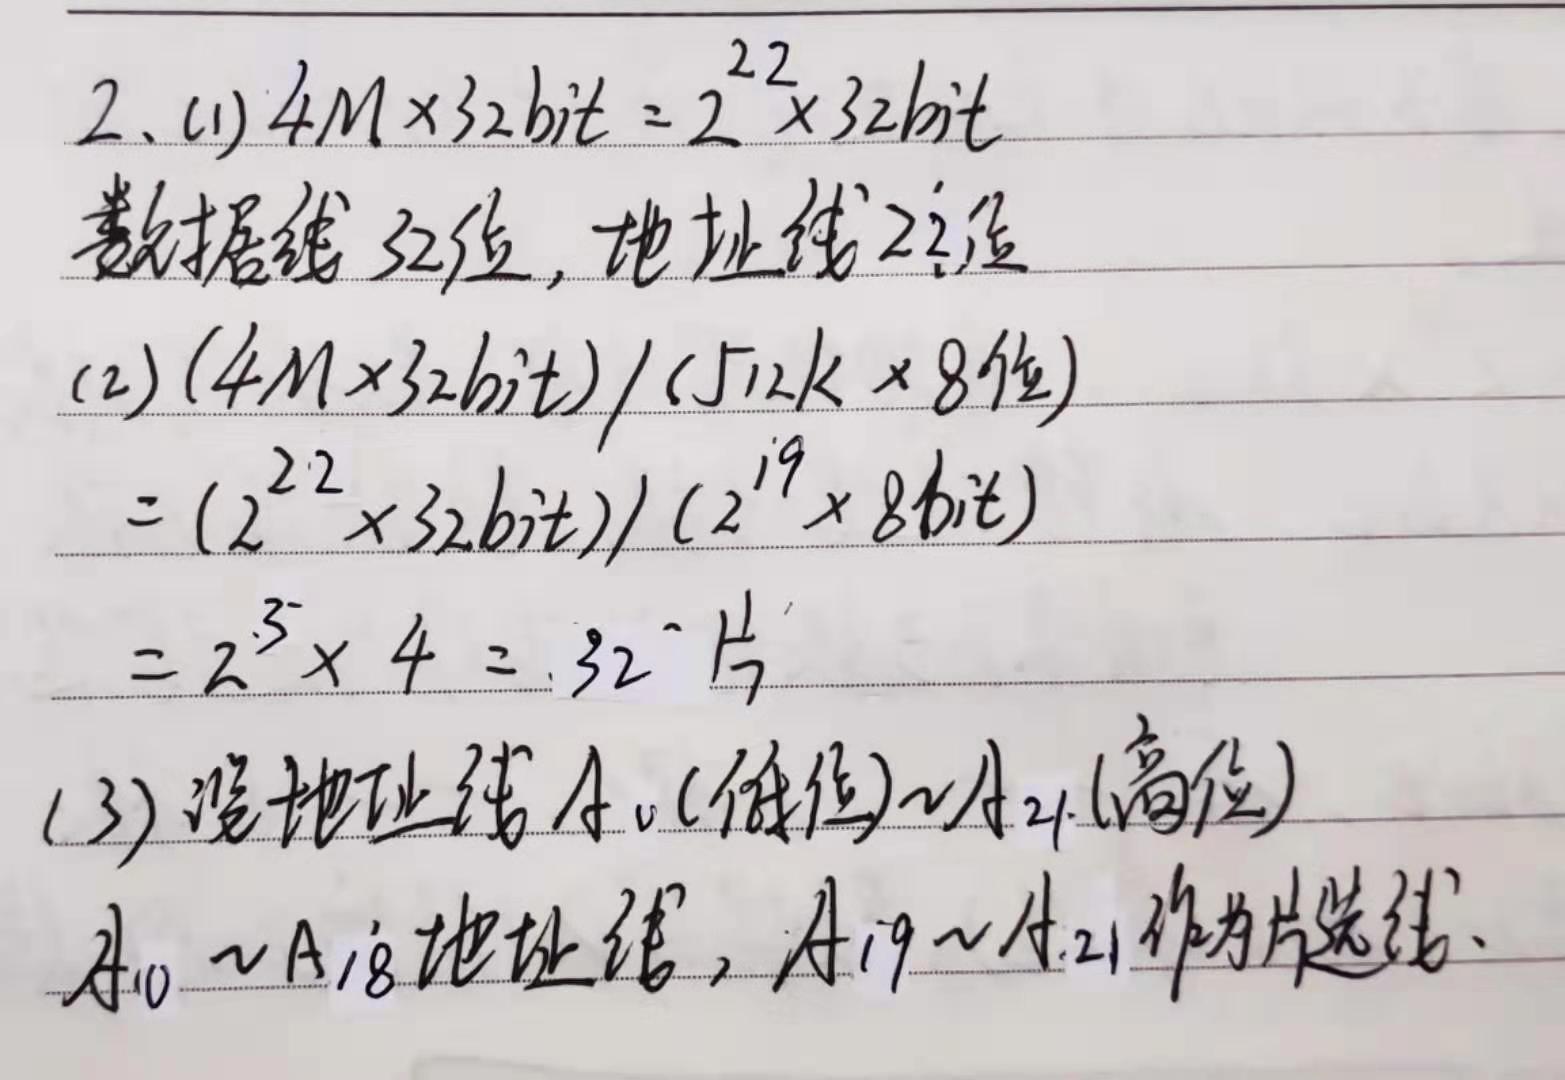 2、(1) 4M×32bit = 2^22×32bit
数据线 32位, 地址线22位
(2) (4M×32bit)/(512k×8位)
= (2^22×32bit)/(2^19×8bit)
= 2^3×4 = 32片
(3) 设地址线 A0(低位)~A21(高位)
A10~A18地址线, A19~A21作为片选线、